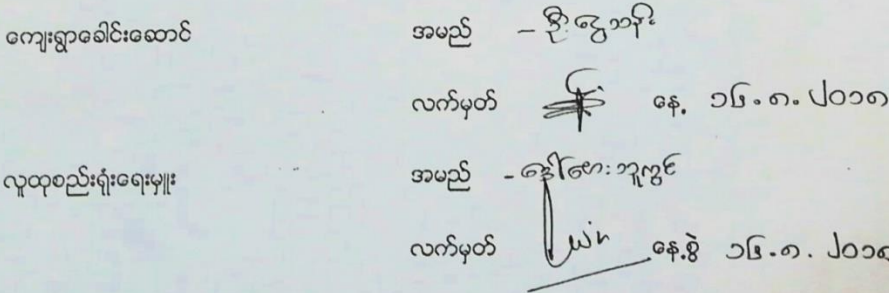 ကျေးရွာခေါင်းဆောင် အမည် - ဦးငွေသန်း
လက်မှတ် နေ့ ၁၆.၈.၂၀၁၈
လူထုစည်းရုံးရေးမှူး အမည် - ဒေါ်အေးဘူကွင်
လက်မှတ် Win နေ့စွဲ ၁၆.၈.၂၀၁၈